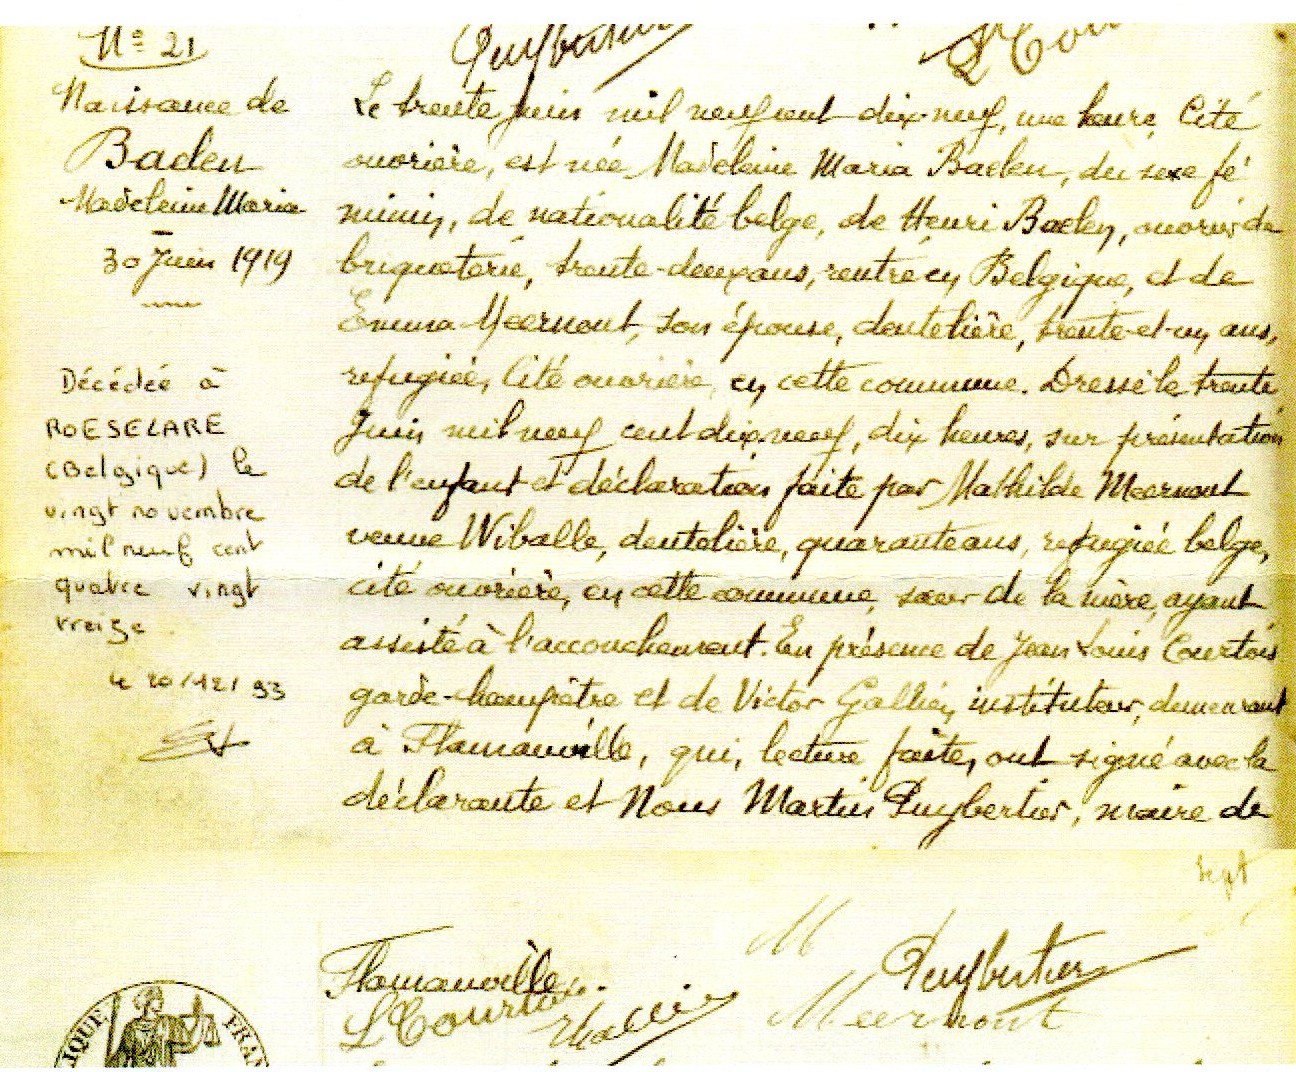 N° 21
Puybertier
Naissance de
Baelen
Madeleine Maria
30 Juin 1919
Décédée à
ROESELARE
(Belgique) le
vingt novembre
mil neuf cent
quatre vingt
treize
le 20/12/93
Le trente juin mil neuf cent dix-neuf, une heure, Cité
ouvrière, est née Madeleine Maria Baelen, du sexe fé
minin, de nationalité belge, de Henri Baelen, ouvrier de
briqueterie, trente-deux ans, rentré en Belgique, et de
Emma Meernout, son épouse, dentelière, trente-et-un ans,
refugiée, Cité ouvrière, en cette commune. Dressé le trente
Juin mil neuf cent dix-neuf, dix heures, sur présentation
de l'enfant et déclaration faite par Mathilde Meernout
veuve Wiballe, dentelière, quarante ans, refugiée belge,
cité ouvrière, en cette commune, sœur de la mère, ayant
assisté à l'accouchement. En présence de Jean Louis Courtois
garde-champêtre et de Victor Gallien, instituteur, demeurant
à Flamanville, qui, lecture faite, ont signé avec la
déclarante et Nous Martin Puybertier, maire de
Flamanville.
M
Puybertier
L Courtois
Meernout
IQUE FRAN